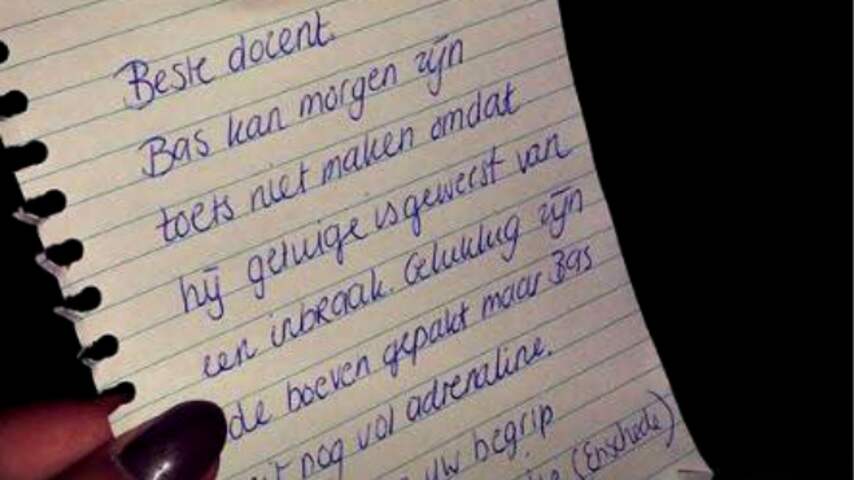 Beste docent.
Bas kan morgen zijn
toets niet maken omdat
hij getuige is geweest van
een inbraak. Gelukkig zijn
de boeven gepakt maar Bas
nog vol adrenaline.
uw begrip
(Enschede)